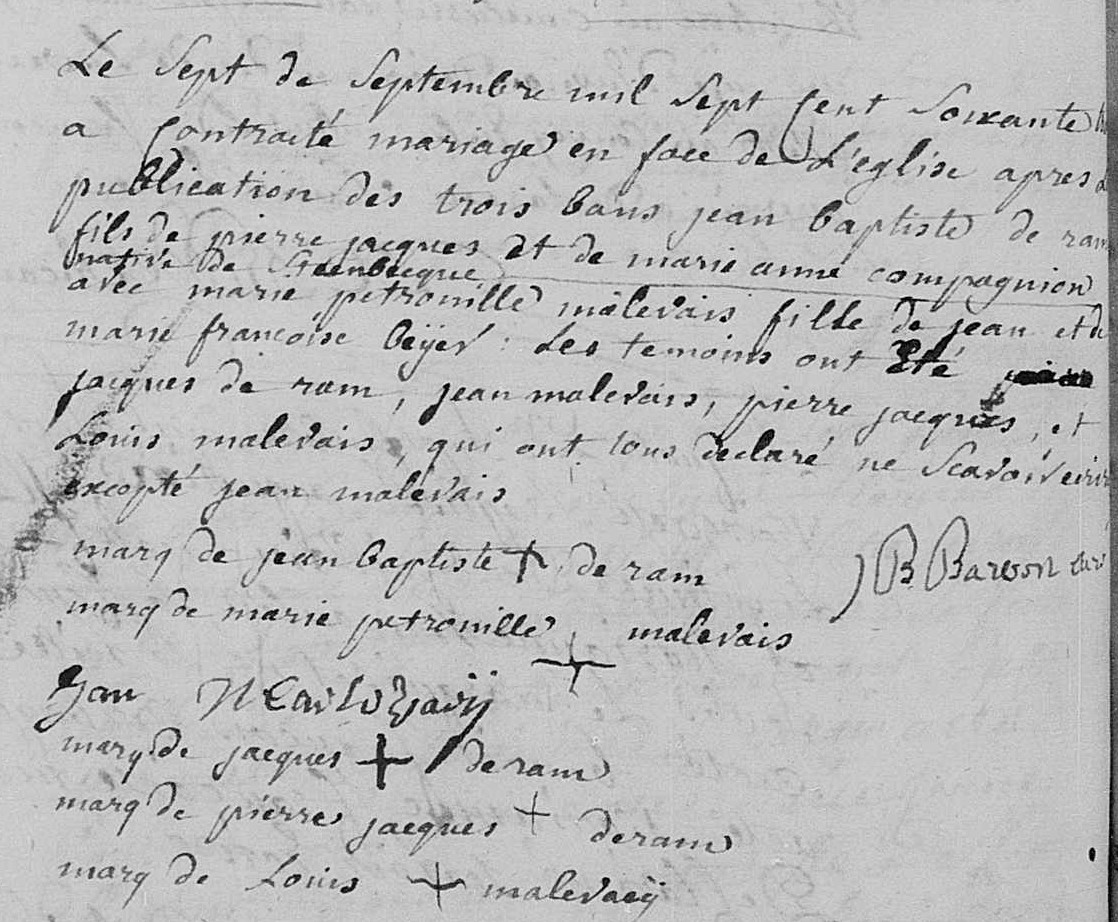 Le Sept de Septembre mil Sept Cent Soixante
a Contracté mariage en face de L'eglise apres
publication des trois bans jean baptiste de ram
fils de pierre jacques et de marie anne compagnion
native de Steenbecque
avec marie petronille malevais fille de jean et de
marie françoise beÿer : Les temoins ont Eté
jacques de ram, jean malevais, pierre jacques, et
Louis malevais, qui ont tous declaré ne Scavoir ecrire
excepté jean malevais
marq de jean baptiste + de ram
JB Barvon curé
marq de marie petronille + malevais
Jan
marq de jacques + de ram
marq de pierre jacques + deram
marq de Louis + malevaeÿ